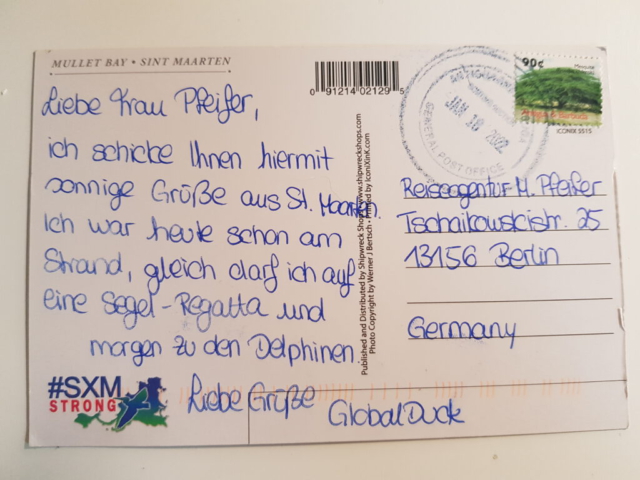 MULLET BAY • SINT MAARTEN
Liebe Frau Pfeifer,
ich schicke Ihnen hiermit
sonnige Größe aus St. Maarten.
Ich war heute schon am
Strand, gleich darf ich auf
eine Segel-Regatta und
morgen zu den Delphinen.
Liebe Größe
GlobalDuck
#SXM
STRONG
0 91214 02129 5
Published and Distributed by Shipwreck Shops www.shipwreckshops.com
Photo Copyright by Werner J Bertsch • Printed by IconiXinK.com
JAN 18 2022
GENERAL POST OFFICE
90c
ICONIX SS15
Reiseagentur M. Pfeifer
Tschaikowskistr. 25
13156 Berlin
Germany